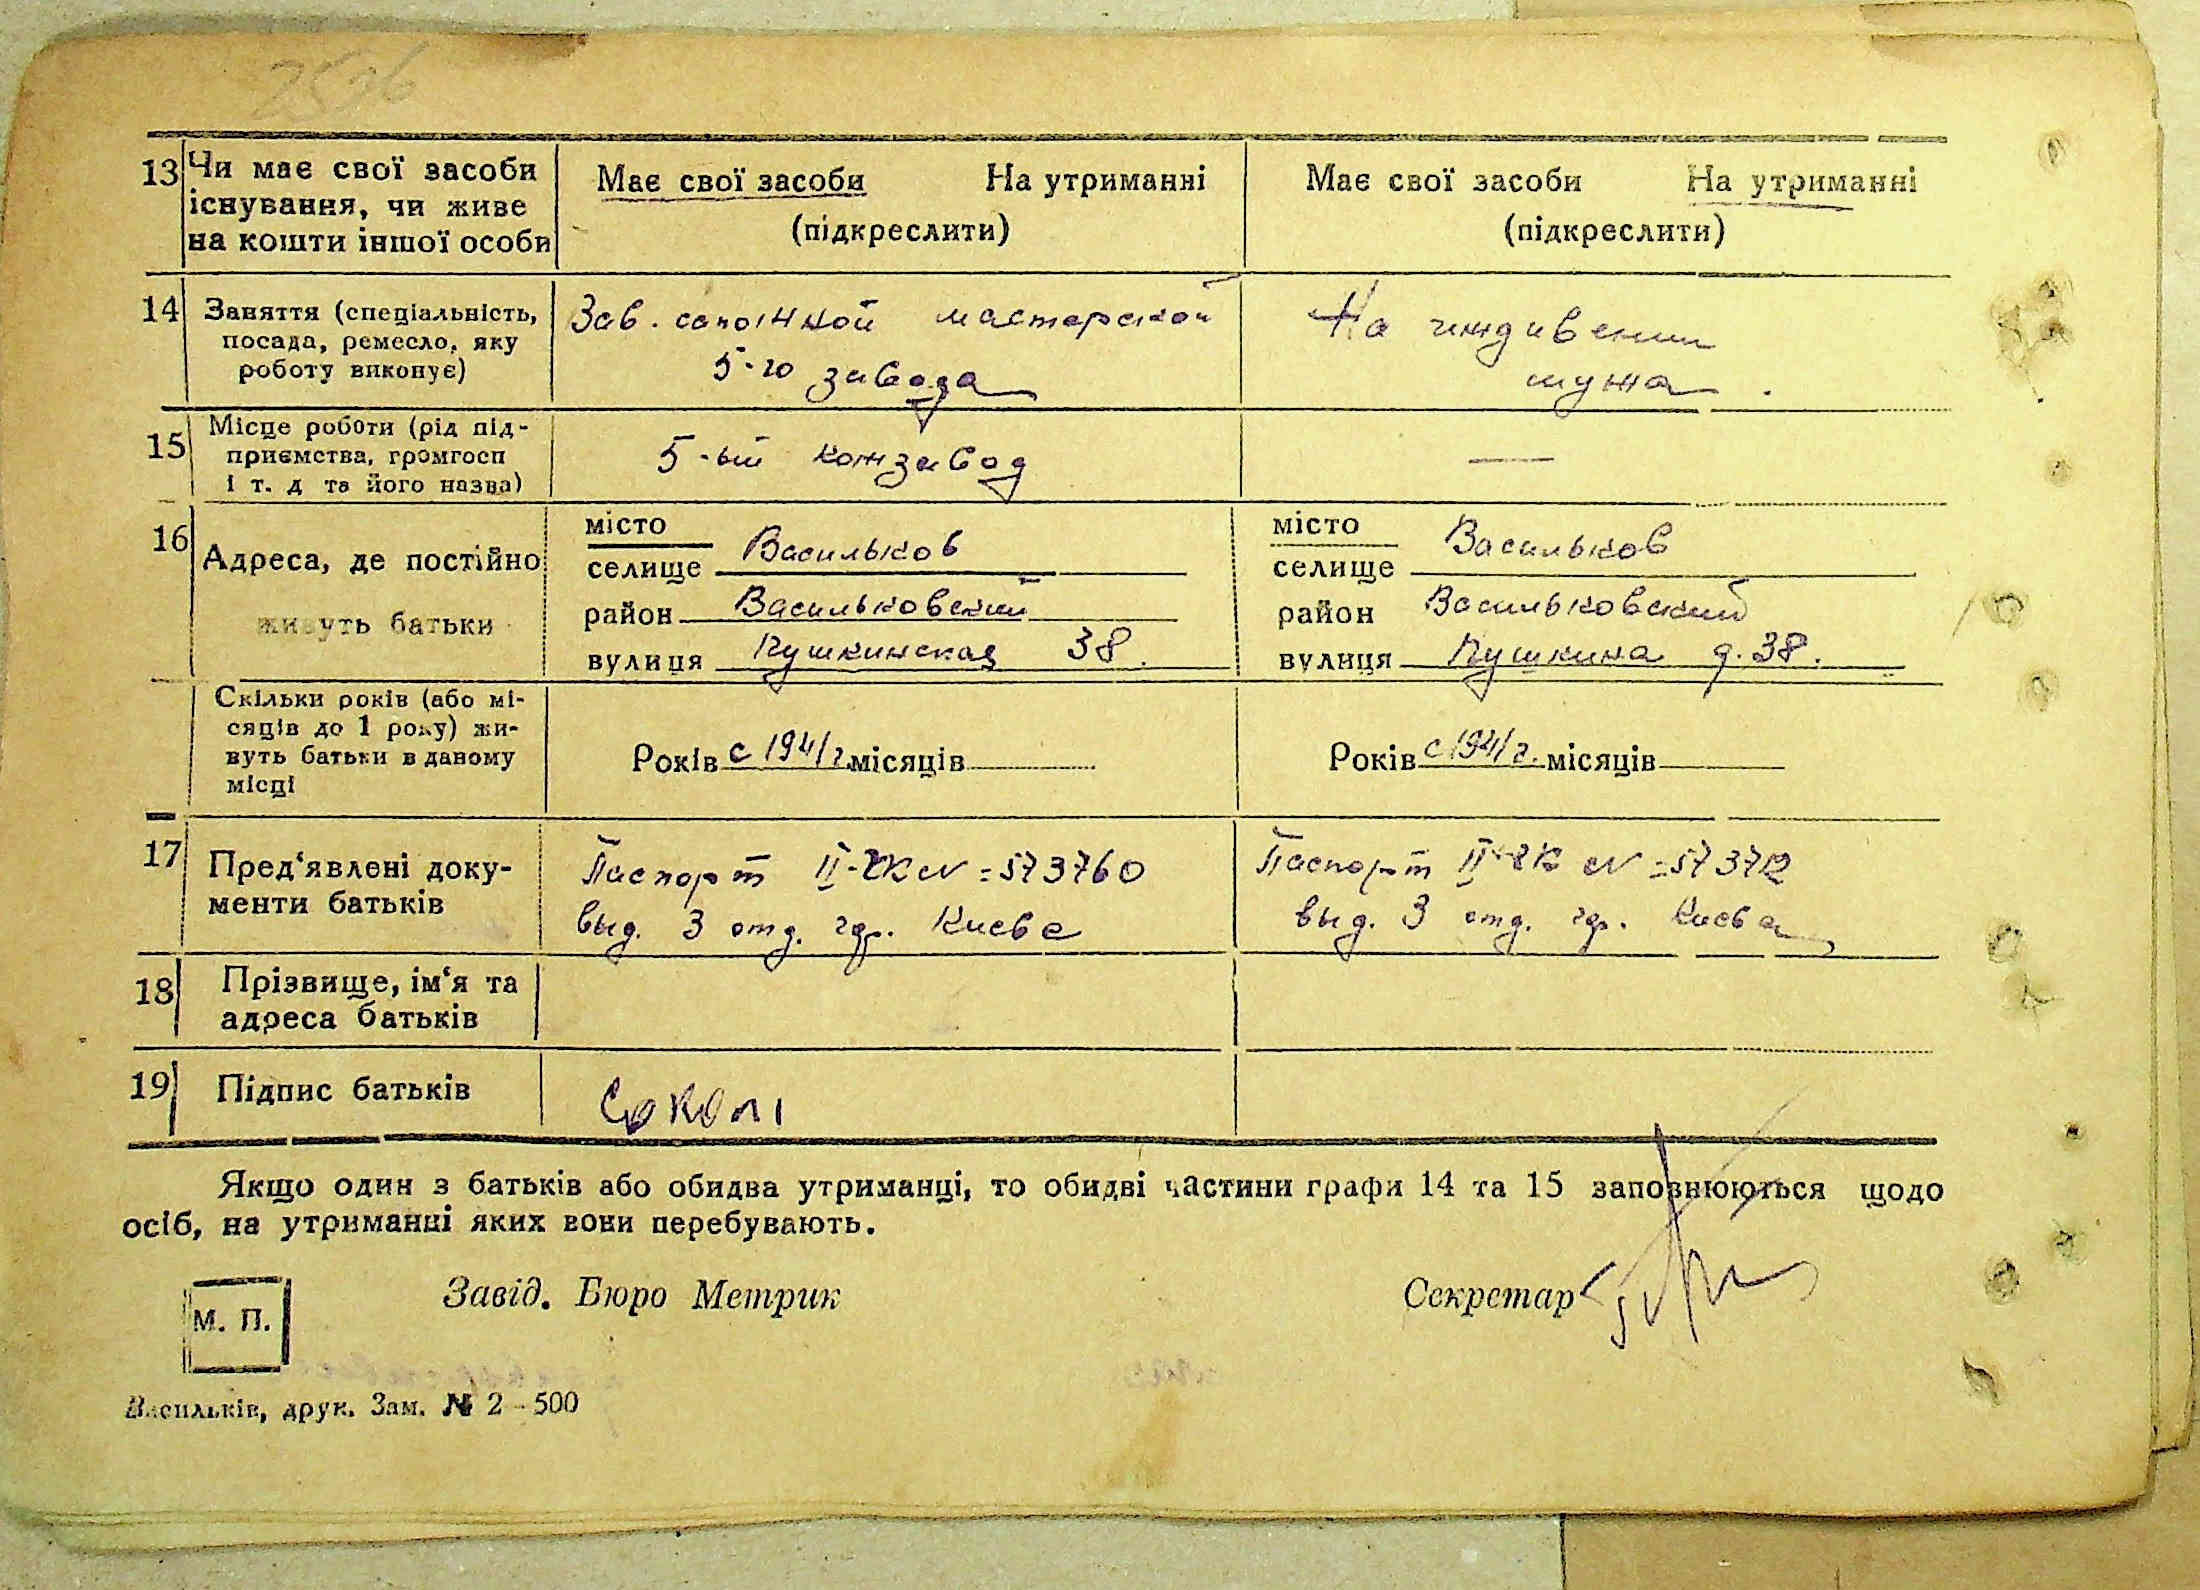 2536
13 Чи має свої засоби існування, чи живе на кошти іншої особи
Має свої засоби На утриманні
(підкреслити)
Має свої засоби На утриманні
(підкреслити)
14 Заняття (спеціальність, посада, ремесло, яку роботу виконує)
Зав. сапожной мастерской
5-го завода
На иждивении
мужа.
15 Місце роботи (рід підприємства, громгосп і т. д та його назва)
5-ый кожзавод
—
16 Адреса, де постійно живуть батьки
місто
селище Васильков
район Васильковский
вулиця Пушкинская 38.
місто
селище Васильков
район Васильковский
вулиця Пушкина д. 38.
Скільки років (або місяців до 1 року) живуть батьки в даному місці
Років с 1941 г. місяців
Років с 1941 г. місяців
17 Пред‘явлені документи батьків
Паспорт II-УК № 573760
выд. 3 отд. гор. Киева
Паспорт II-УК № 573712
выд. 3 отд. гор. Киева
18 Прізвище, ім‘я та адреса батьків
19 Підпис батьків
Якщо один з батьків або обидва утриманці, то обидві частини графи 14 та 15 заповнюються щодо
осіб, на утриманні яких вони перебувають.
М. П.
Завід. Бюро Метрик
Секретар
Васильків, друк. Зам. № 2 - 500